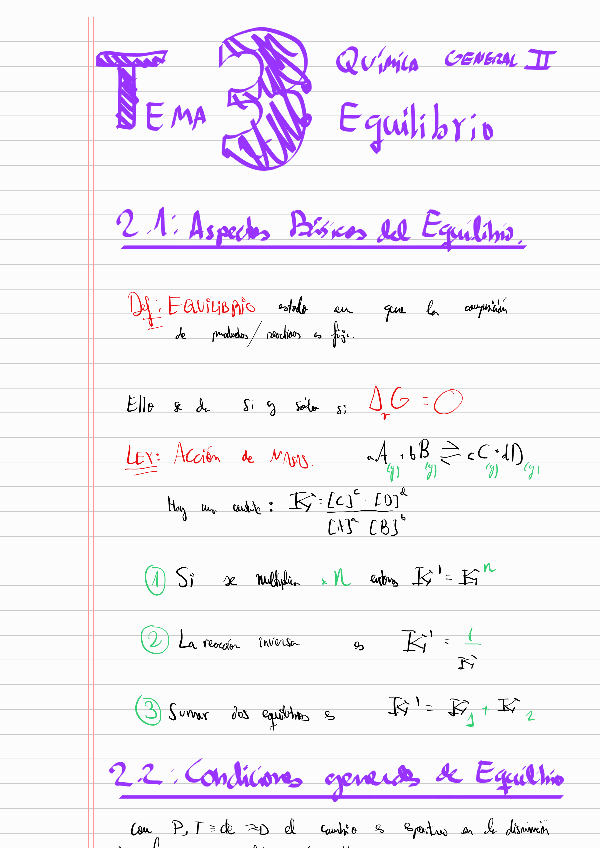 TEMA 3 QUÍMICA GENERAL II
Equilibrio
2.1: Aspectos Básicos del Equilibrio.
Def: EQUILIBRIO estado en que la composición
de productos/reactivos es fija.
Ello se da si y sólo si ΔᵣG = 0
LEY: Acción de MASAS. aA(g) + bB(g) ⇌ cC(g) + dD(g)
Hay una : K = [C]^c · [D]^d / [A]^a [B]^b
① Si se multiplica × n entonces K' = K^n
② La reacción inversa es K' = 1/K
③ Sumar dos equilibrios es K' = K₁ + K₂
2.2: Condiciones generales de Equilibrio
con P, T = de el cambio es en la disminución